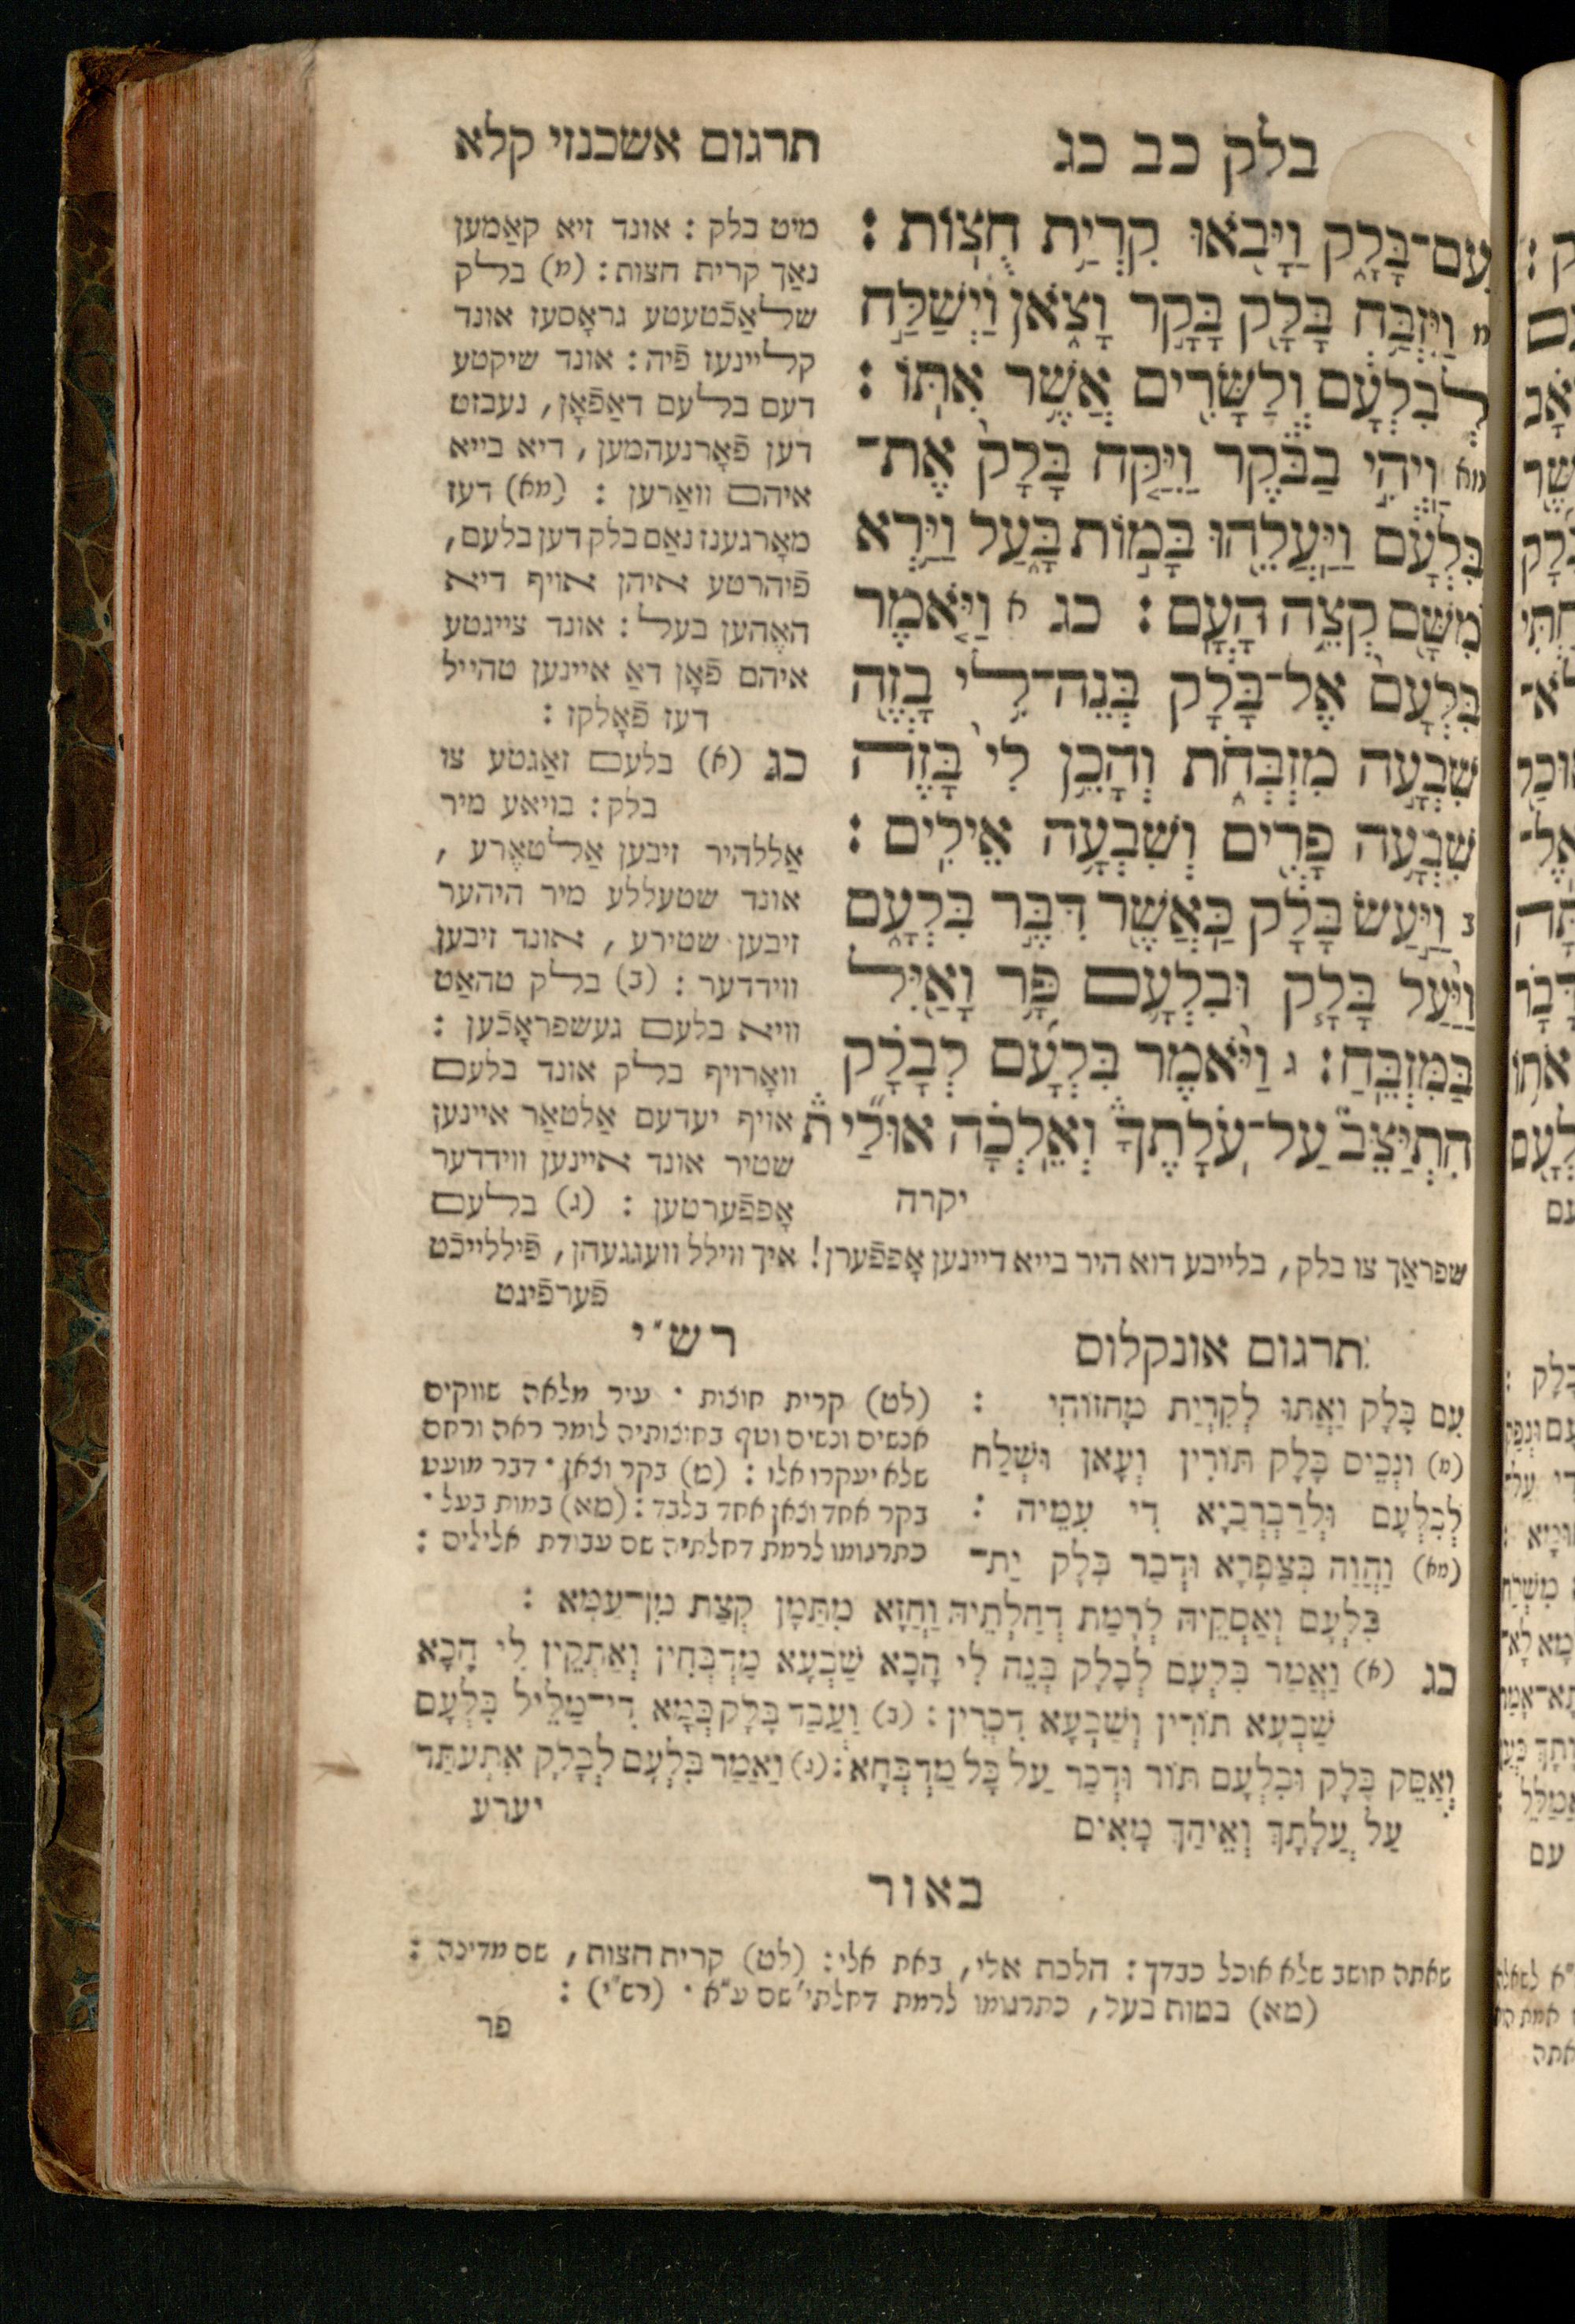 בלק כב כג
תרגום אשכנזי קלא
עִם־בָּלָ֑ק וַיָּבֹ֖אוּ קִרְיַ֥ת חֻצֽוֹת׃
מ וַיִּזְבַּ֥ח בָּלָ֖ק בָּקָ֣ר וָצֹ֑אן וַיְשַׁלַּ֣ח
לְבִלְעָ֔ם וְלַשָּׂרִ֖ים אֲשֶׁ֥ר אִתּֽוֹ׃
מא וַיְהִ֣י בַבֹּ֔קֶר וַיִּקַּ֤ח בָּלָק֙ אֶת־
בִּלְעָ֔ם וַיַּעֲלֵ֖הוּ בָּמ֣וֹת בָּ֑עַל וַיַּ֥רְא
מִשָּׁ֖ם קְצֵ֥ה הָעָֽם׃ כג א וַיֹּ֤אמֶר
בִּלְעָם֙ אֶל־בָּלָ֔ק בְּנֵה־לִ֥י בָזֶ֖ה
שִׁבְעָ֣ה מִזְבְּחֹ֑ת וְהָכֵ֥ן לִי֙ בָּזֶ֔ה
שִׁבְעָ֥ה פָרִ֖ים וְשִׁבְעָ֥ה אֵילִֽים׃
ב וַיַּ֣עַשׂ בָּלָ֔ק כַּאֲשֶׁ֖ר דִּבֶּ֣ר בִּלְעָ֑ם
וַיַּ֨עַל בָּלָ֧ק וּבִלְעָ֛ם פָּ֥ר וָאַ֖יִל
בַּמִּזְבֵּֽחַ׃ ג וַיֹּ֨אמֶר בִּלְעָ֜ם לְבָלָ֗ק
הִתְיַצֵּב֮ עַל־עֹלָתֶךָ֒ וְאֵֽלְכָ֗ה אוּלַ֞י
יקרה
מיט בלק: אונד זיא קאַמען
נאַך קרית חצות: (מ) בלק
שלאַכֿטעטע גראָסעז אונד
קליינעז פֿיה: אונד שיקטע
דעם בלעם דאַפֿאָן, נעבזט
דען פֿאָרנעהמען, דיא בייא
איהם וואַרען: (מא) דעז
מאָרגענז נאַם בלק דען בלעם,
פֿיהרטע איהן אויף דיא
האֶהען בעל: אונד צייגטע
איהם פֿאָן דאַ איינען טהייל
דעז פֿאָלקז:
כג (א) בלעם זאַגטע צו
בלק: בויאע מיר
אַללהיר זיבען אַלטאֶרע,
אונד שטעללע מיר היהער
זיבען שטירע, אונד זיבען
ווידדער: (ב) בלק טהאַט
וויא בלעם געשפראָכֿען:
וואָרויף בלק אונד בלעם
אויף יעדעם אַלטאַר איינען
שטיר אונד איינען ווידדער
אָפפֿערטען: (ג) בלעם
שפראַך צו בלק, בלייבע דוא היר בייא דיינען אָפפֿערן! איך ווילל וועגגעהן, פֿיללייכֿט
פֿערפֿינט
תרגום אונקלוס
עִם בָּלָק וַאֲתוֹ לְקִרְיַת מָחוֹזוֹהִי:
(מ) וּנְכֵיס בָּלָק תּוֹרִין וְעָאן וּשְׁלַח
לְבִלְעָם וּלְרַבְרְבַיָּא דִי עִמֵּיהּ:
(מא) וַהֲוָה בְצַפְרָא וּדְבַר בָּלָק יַת־
בִּלְעָם וְאַסְּקֵיהּ לְרָמַת דַּחַלְתֵּיהּ וַחֲזָא מִתַּמָּן קְצָת מִן־עַמָּא:
כג (א) וַאֲמַר בִּלְעָם לְבָלָק בְּנֵה לִי הָכָא שַׁבְעָא מַדְבְּחִין וְאַתְקֵין לִי הָכָא
שַׁבְעָא תוֹרִין וְשַׁבְעָא דִכְרִין: (ב) וַעֲבַד בָּלָק כְּמָא דִי־מַלֵּיל בִּלְעָם
וְאַסֵּק בָּלָק וּבִלְעָם תּוֹר וּדְכַר עַל כָּל מַדְבְּחָא: (ג) וַאֲמַר בִּלְעָם לְבָלָק אִתְעַתַּד
עַל עֲלָתָךְ וְאֵיהַךְ מָאִים
יערע
רש״י
(לט) קרית חוצות. עיר מלאה שווקים
אנשים ונשים וטף בחוצותיה לומר ראה ורחם
שלא יעקרו אלו: (מ) בקר וצאן. דבר מועט
בקר אחד וצאן אחד בלבד: (מא) במות בעל.
כתרגומו לרמת דחלתיה שם עבודת אלילים:
באור
שאתה חושב שלא אוכל כבדך: הלכת אלי, באת אלי: (לט) קרית חצות, שם מדינה:
(מא) במות בעל, כתרגומו לרמת דחלתי׳ שם ע״א. (רש״י):
פר